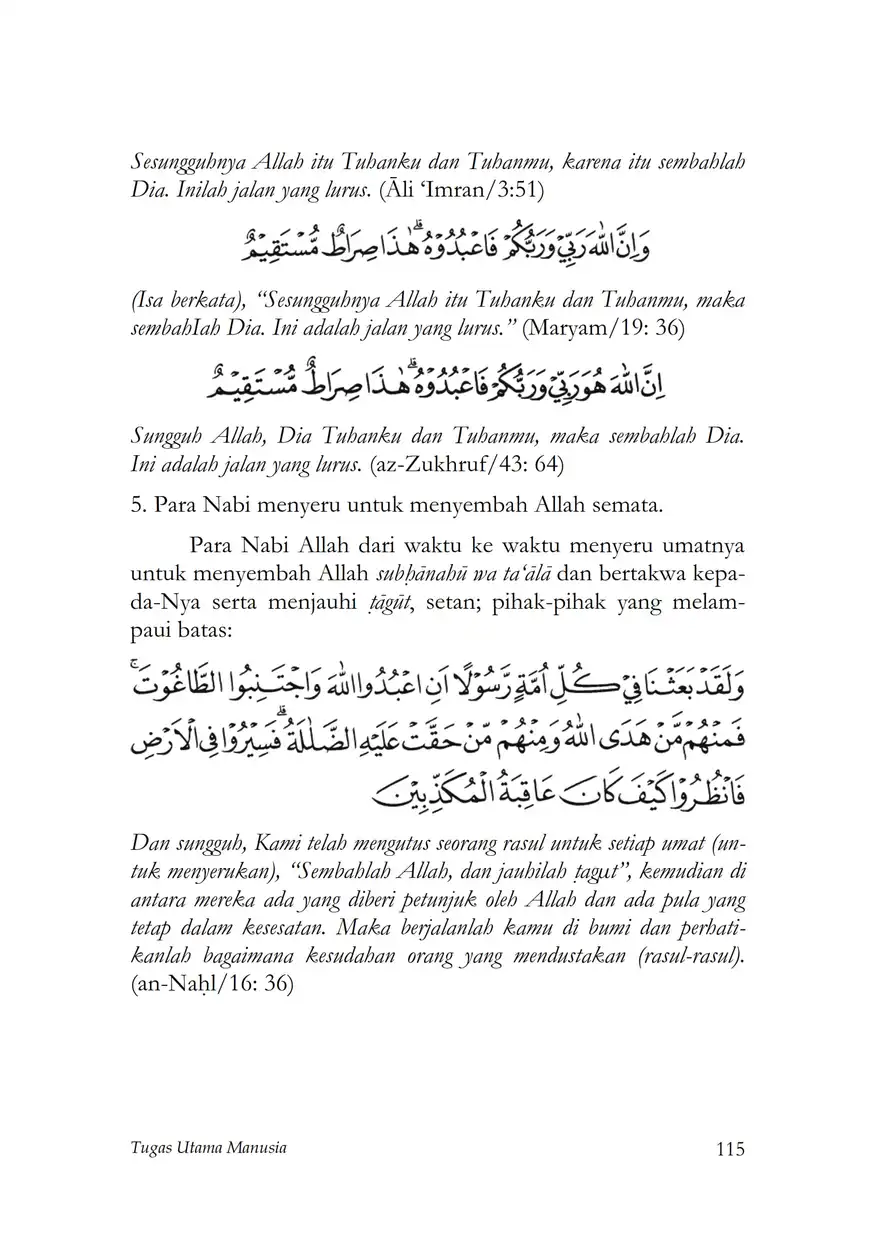 Sesungguhnya Allah itu Tuhanku dan Tuhanmu, karena itu sembahlah
Dia. Inilah jalan yang lurus. (Āli ‘Imran/3:51)
وَاِنَّ اللّٰهَ رَبِّيْ وَرَبُّكُمْ فَاعْبُدُوْهُ ۗهٰذَا صِرَاطٌ مُّسْتَقِيْمٌ
(Isa berkata), “Sesungguhnya Allah itu Tuhanku dan Tuhanmu, maka
sembahIah Dia. Ini adalah jalan yang lurus.” (Maryam/19: 36)
اِنَّ اللّٰهَ هُوَ رَبِّيْ وَرَبُّكُمْ فَاعْبُدُوْهُ ۗهٰذَا صِرَاطٌ مُّسْتَقِيْمٌ
Sungguh Allah, Dia Tuhanku dan Tuhanmu, maka sembahlah Dia.
Ini adalah jalan yang lurus. (az-Zukhruf/43: 64)
5. Para Nabi menyeru untuk menyembah Allah semata.
Para Nabi Allah dari waktu ke waktu menyeru umatnya
untuk menyembah Allah subḥānahū wa ta‘ālā dan bertakwa kepa-
da-Nya serta menjauhi ṭāgūt, setan; pihak-pihak yang melam-
paui batas:
وَلَقَدْ بَعَثْنَا فِيْ كُلِّ اُمَّةٍ رَّسُوْلًا اَنِ اعْبُدُوا اللّٰهَ وَاجْتَنِبُوا الطَّاغُوْتَ ۚ
فَمِنْهُمْ مَّنْ هَدَى اللّٰهُ وَمِنْهُمْ مَّنْ حَقَّتْ عَلَيْهِ الضَّلٰلَةُ ۗ فَسِيْرُوْا فِى الْاَرْضِ
فَانْظُرُوْا كَيْفَ كَانَ عَاقِبَةُ الْمُكَذِّبِيْنَ
Dan sungguh, Kami telah mengutus seorang rasul untuk setiap umat (un-
tuk menyerukan), “Sembahlah Allah, dan jauhilah ṭagut”, kemudian di
antara mereka ada yang diberi petunjuk oleh Allah dan ada pula yang
tetap dalam kesesatan. Maka berjalanlah kamu di bumi dan perhati-
kanlah bagaimana kesudahan orang yang mendustakan (rasul-rasul).
(an-Naḥl/16: 36)
Tugas Utama Manusia 115